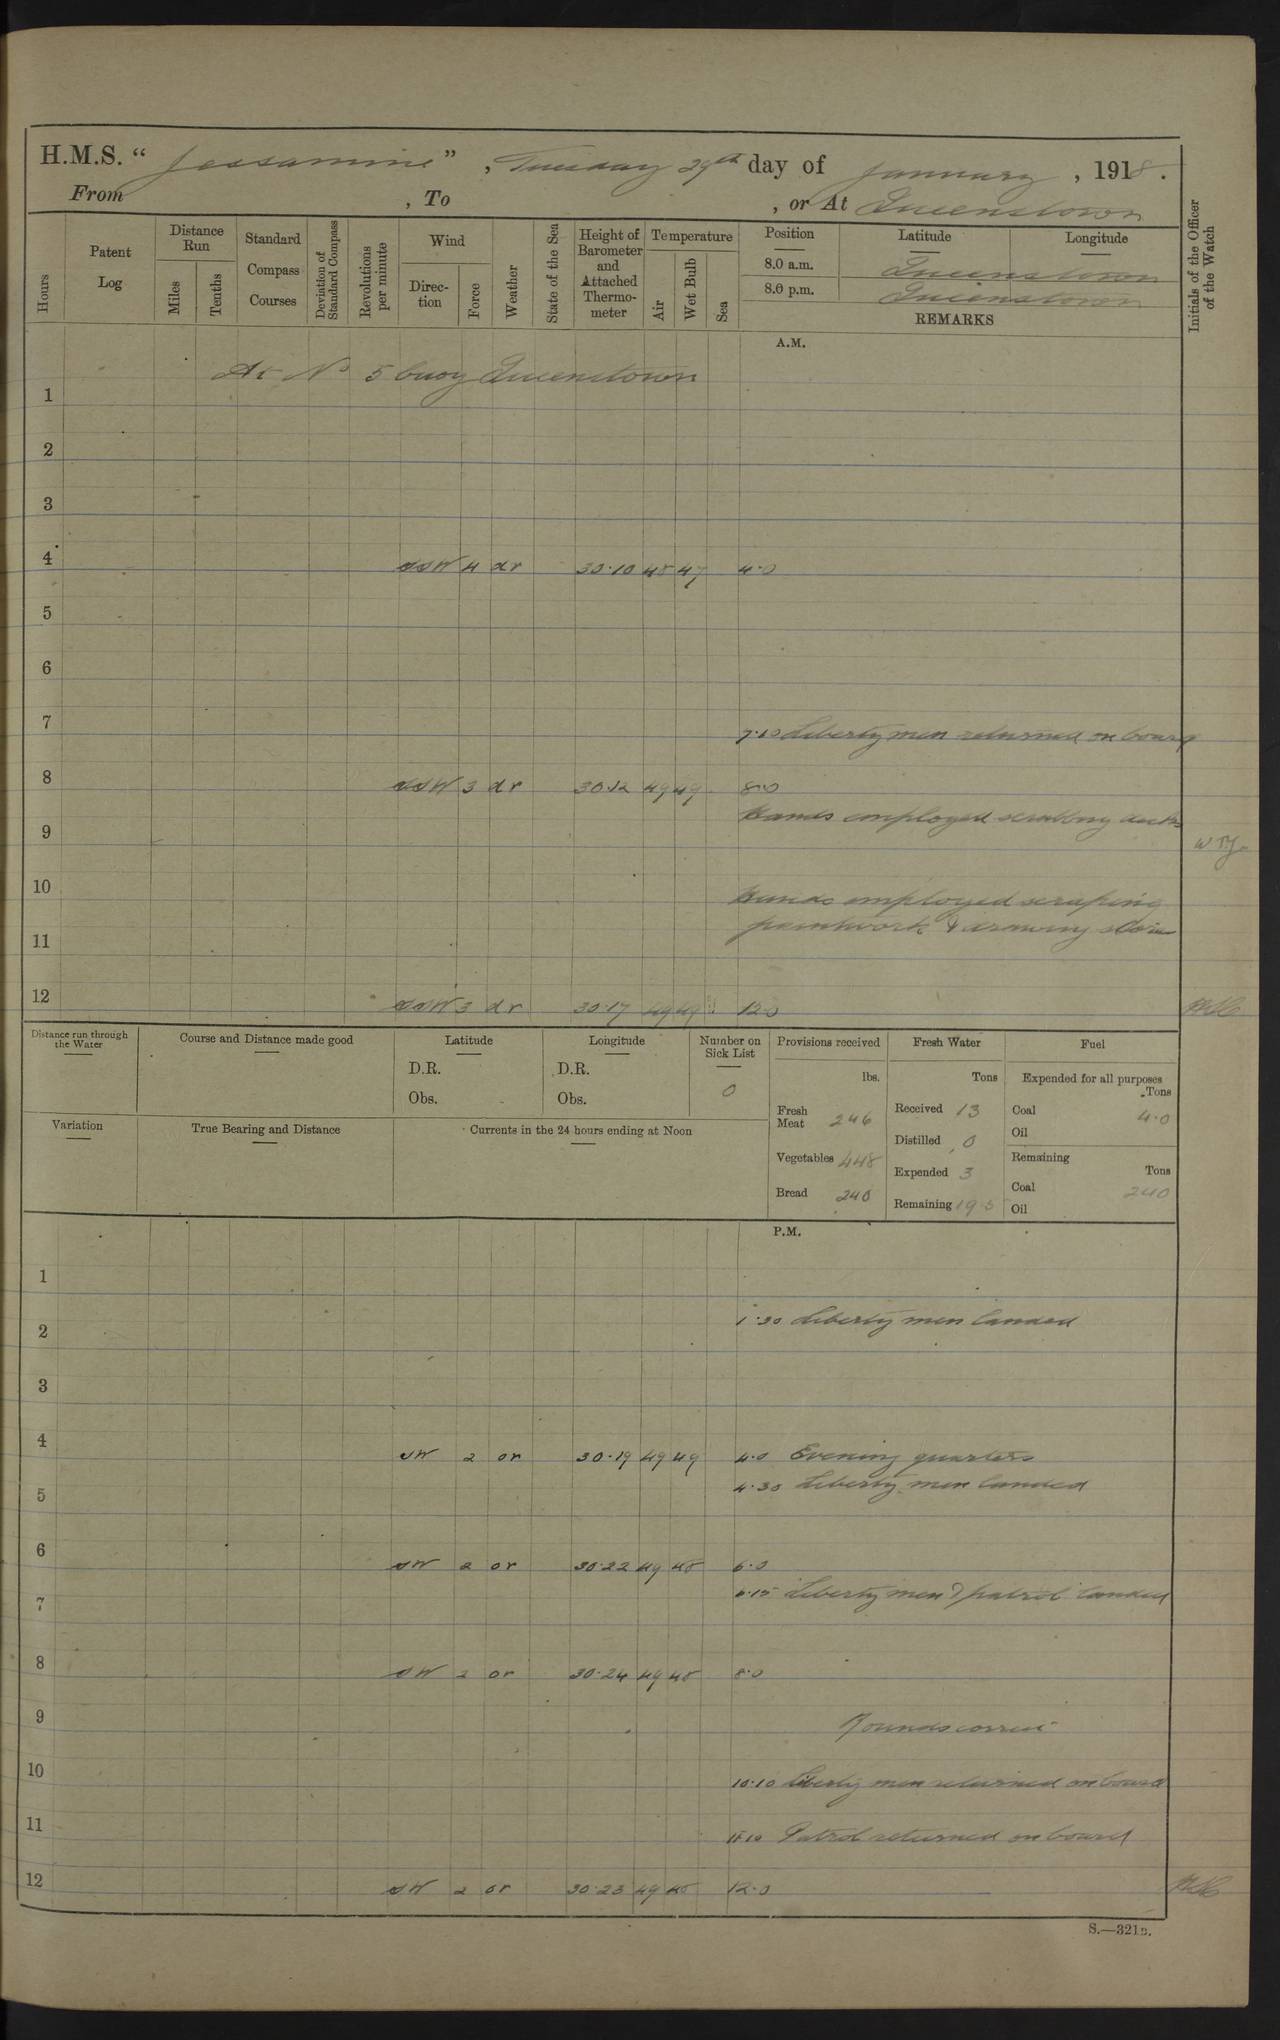 H.M.S. “Jessamine”, Tuesday 29th day of January, 1918.
From , To , or At Queenstown
Hours
Patent Log
Distance Run
Miles
Tenths
Standard Compass Courses
Deviation of Standard Compass
Revolutions per minute
Wind
Direction
Force
Weather
State of the Sea
Height of Barometer and Attached Thermometer
Temperature
Air
Wet Bulb
Sea
Position
Latitude
Longitude
8.0 a.m. Queenstown
8.0 p.m. Queenstown
REMARKS
Initials of the Officer of the Watch
A.M.
At No 5 buoy Queenstown
1
2
3
4 SSW 4 dr 30.10 48 47 4.0
5
6
7 7.10 Liberty men returned on board
8 SSW 3 dr 30.12 49 49 8.0
Hands employed scrubbing decks
9
10 Hands employed scraping
paintwork & drawing stores
11
12 SSW 3 dr 30.17 49 49 12.0
Distance run through the Water
Course and Distance made good
Latitude
D.R.
Obs.
Longitude
D.R.
Obs.
Number on Sick List
0
Provisions received
lbs.
Fresh Meat 246
Vegetables 448
Bread 240
Fresh Water
Tons
Received 13
Distilled 0
Expended 3
Remaining 19.5
Fuel
Expended for all purposes
Tons
Coal 4.0
Oil
Remaining
Tons
Coal 240
Oil
Variation
True Bearing and Distance
Currents in the 24 hours ending at Noon
P.M.
1
1.30 Liberty men landed
2
3
4 SW 2 or 30.19 49 49 4.0 Evening quarters
4.30 Liberty men landed
5
6 SW 2 or 30.22 49 48 6.0
6.15 Liberty men & patrol landed
7
8 SW 2 or 30.24 49 48 8.0
9 Rounds correct
10 10.10 Liberty men returned on board
11 11.10 Patrol returned on board
12 SW 2 or 30.23 49 48 12.0
S.—321B.